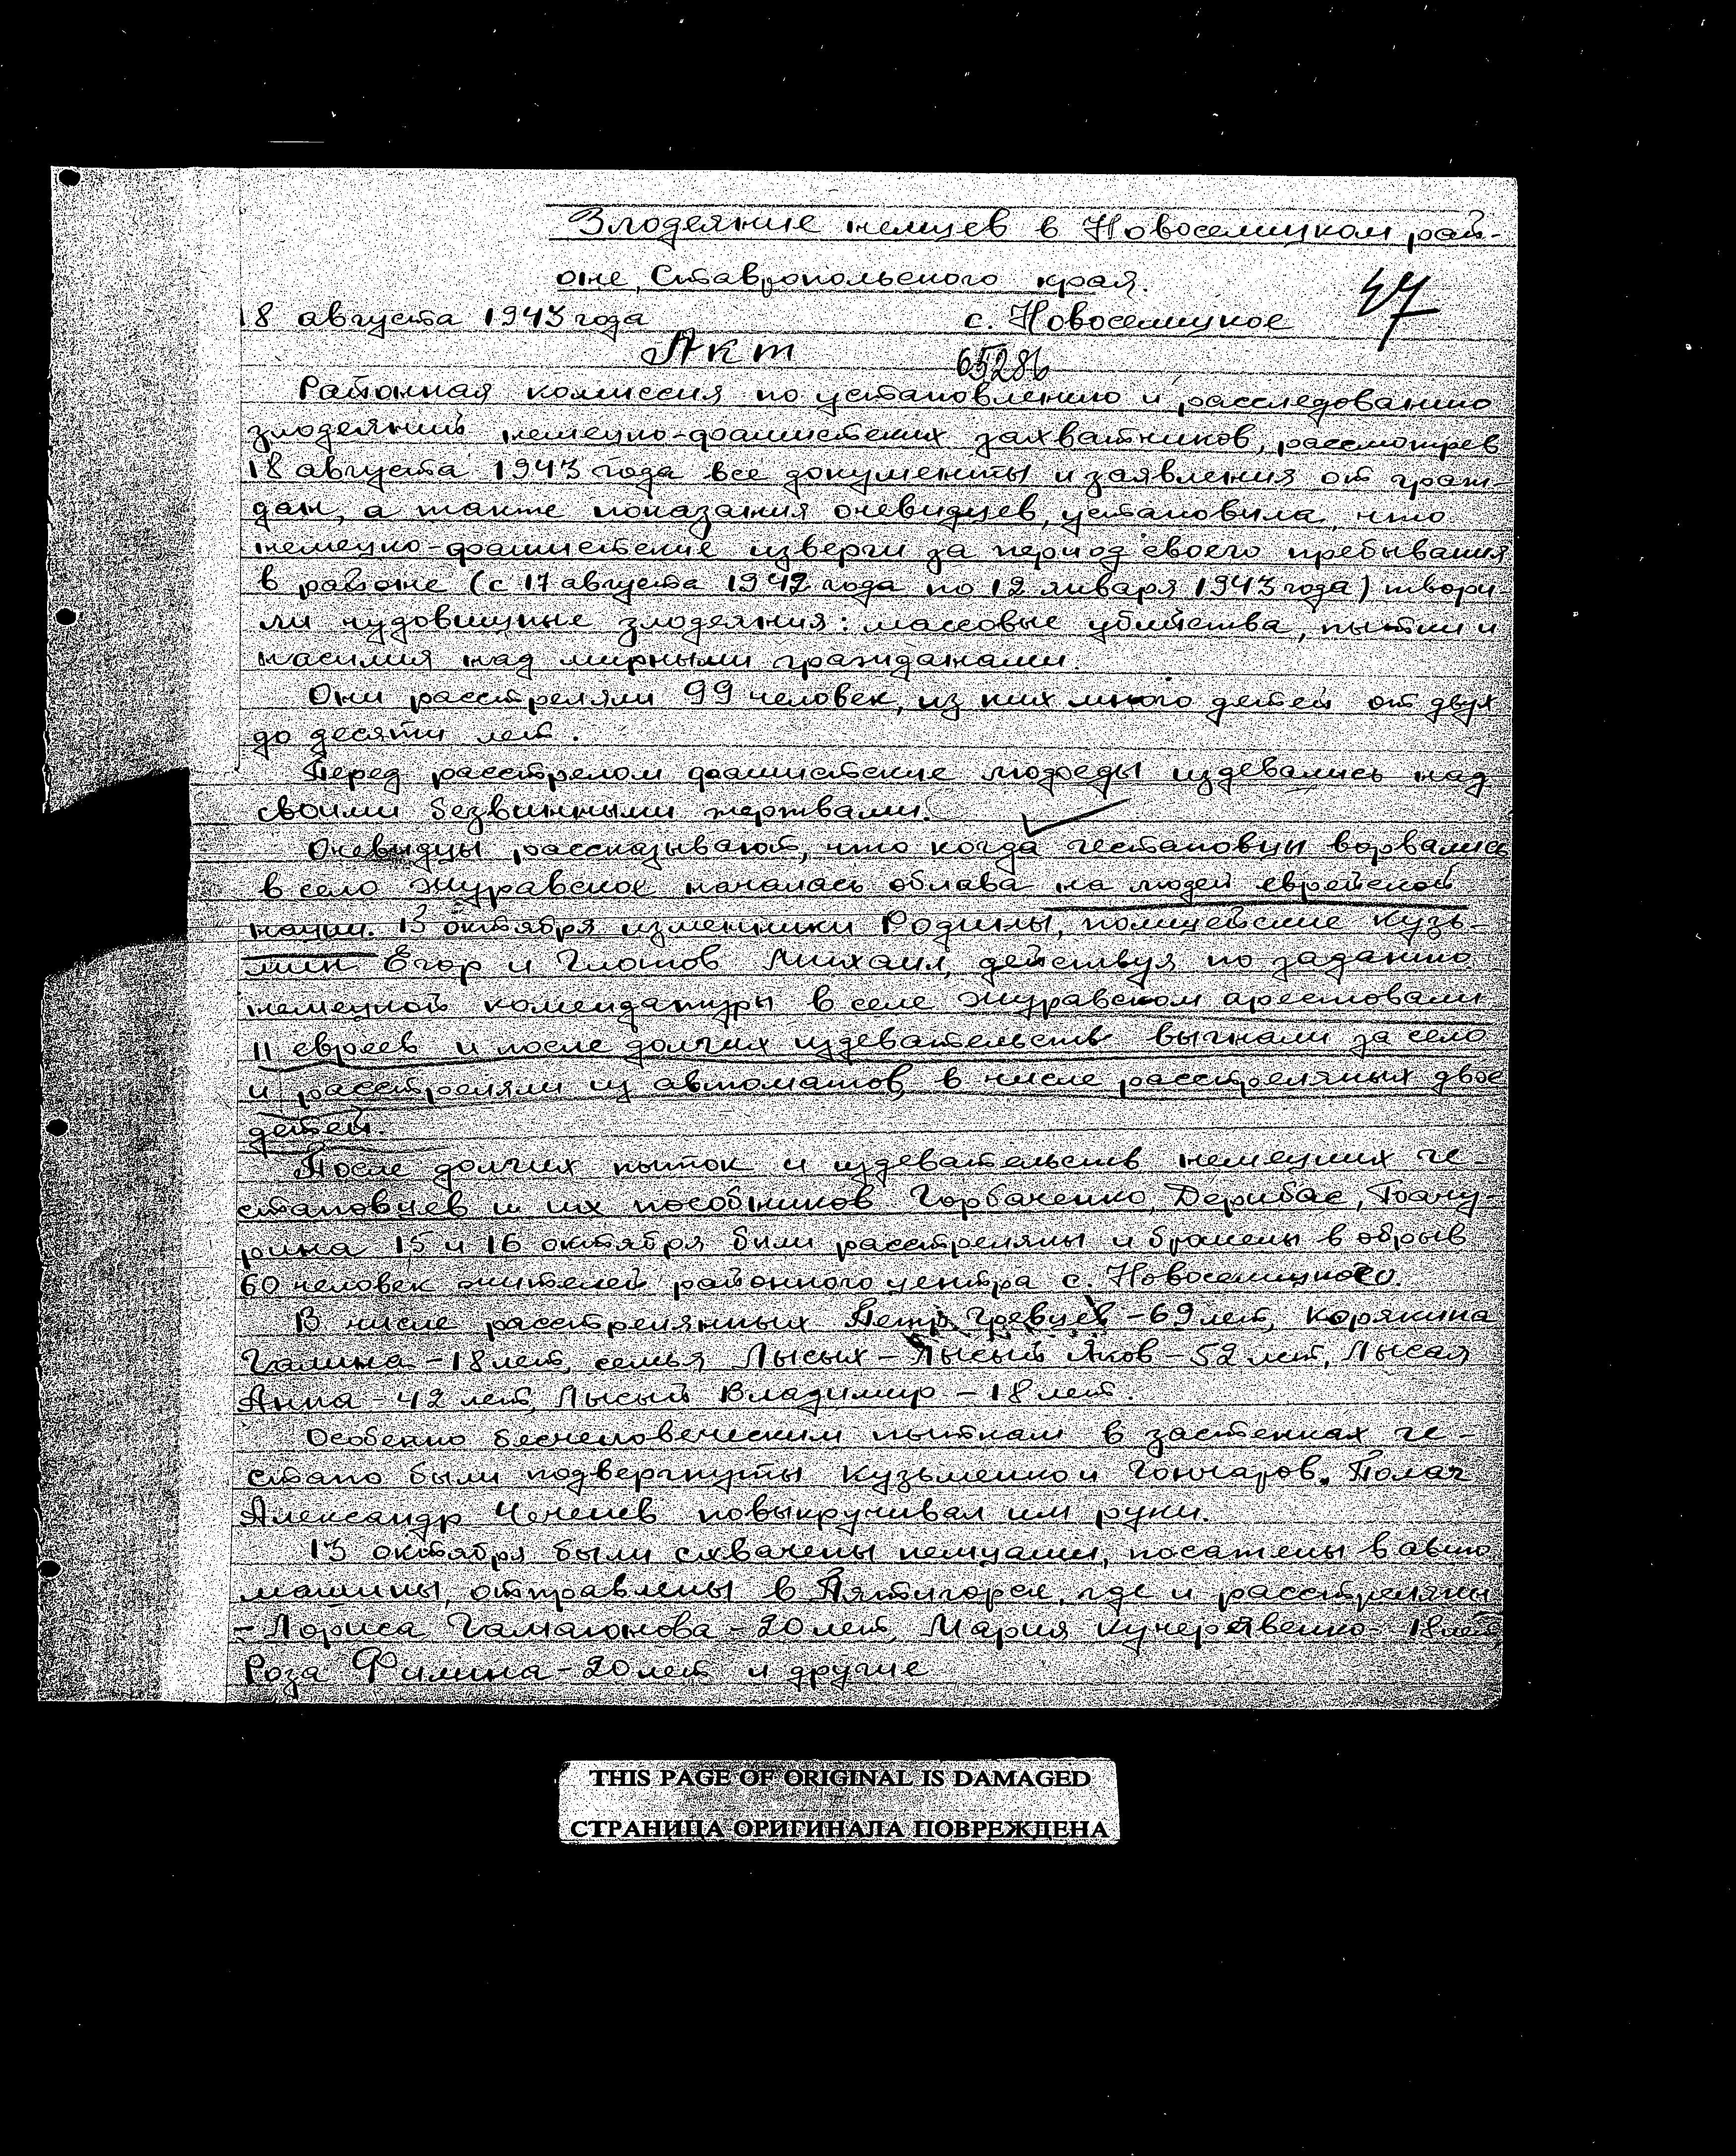 Злодеяние немцев в Новоселицком рай-
оне, Ставропольского края.
47
18 августа 1943 года с. Новоселицкое
Акт 65286
Районная комиссия по установлению и расследованию
злодеяний немецко-фашистских захватчиков, рассмотрев
18 августа 1943 года все документы и заявления от граж-
дан, а также показания очевидцев, установила, что
немецко-фашистские изверги за период своего пребывания
в районе (с 17 августа 1942 года по 12 января 1943 года) твори-
ли чудовищные злодеяния: массовые убийства, пытки и
насилия над мирными гражданами.
Они расстреляли 99 человек, из них много детей от двух
до десяти лет.
Перед расстрелом фашистские людоеды издевались над
своими безвинными жертвами.
Очевидцы рассказывают, что когда гестаповцы ворвались
в село Журавское началась облава на людей еврейской
нации. 13 октября изменники Родины, полицейские Кузь-
мин Егор и Глотов Михаил, действуя по заданию
немецкой комендатуры в селе Журавском арестовали
11 евреев и после долгих издевательств выгнали за село
и расстреляли из автоматов, в числе расстреляных двое
детей.
После долгих пыток и издевательств немецких ге-
стаповцев и их пособников Горбаченко, Дерибас,
15 и 16 октября были расстреляны и брошены в обрыв
60 человек жителей районного центра с. Новоселицкого.
В числе расстрелянных Петр Гревцев - 69 лет, Корякина
Галина - 18 лет, семья Лысых - Лысый Яков - 52 лет, Лысая
Анна - 42 лет, Лысый Владимир - 18 лет.
Особенно бесчеловеческим пыткам в застенках ге-
стапо были подвергнуты Кузьменко и Гончаров. Палач
Александр повыкручивал им руки.
13 октября были схвачены немцами, посажены в авто
машины, отправлены в Пятигорск, где и расстреляны
- Лариса - 20 лет, Мария Кучерявенко - 18 лет
Роза Филина - 20 лет и другие
THIS PAGE OF ORIGINAL IS DAMAGED
СТРАНИЦА ОРИГИНАЛА ПОВРЕЖДЕНА